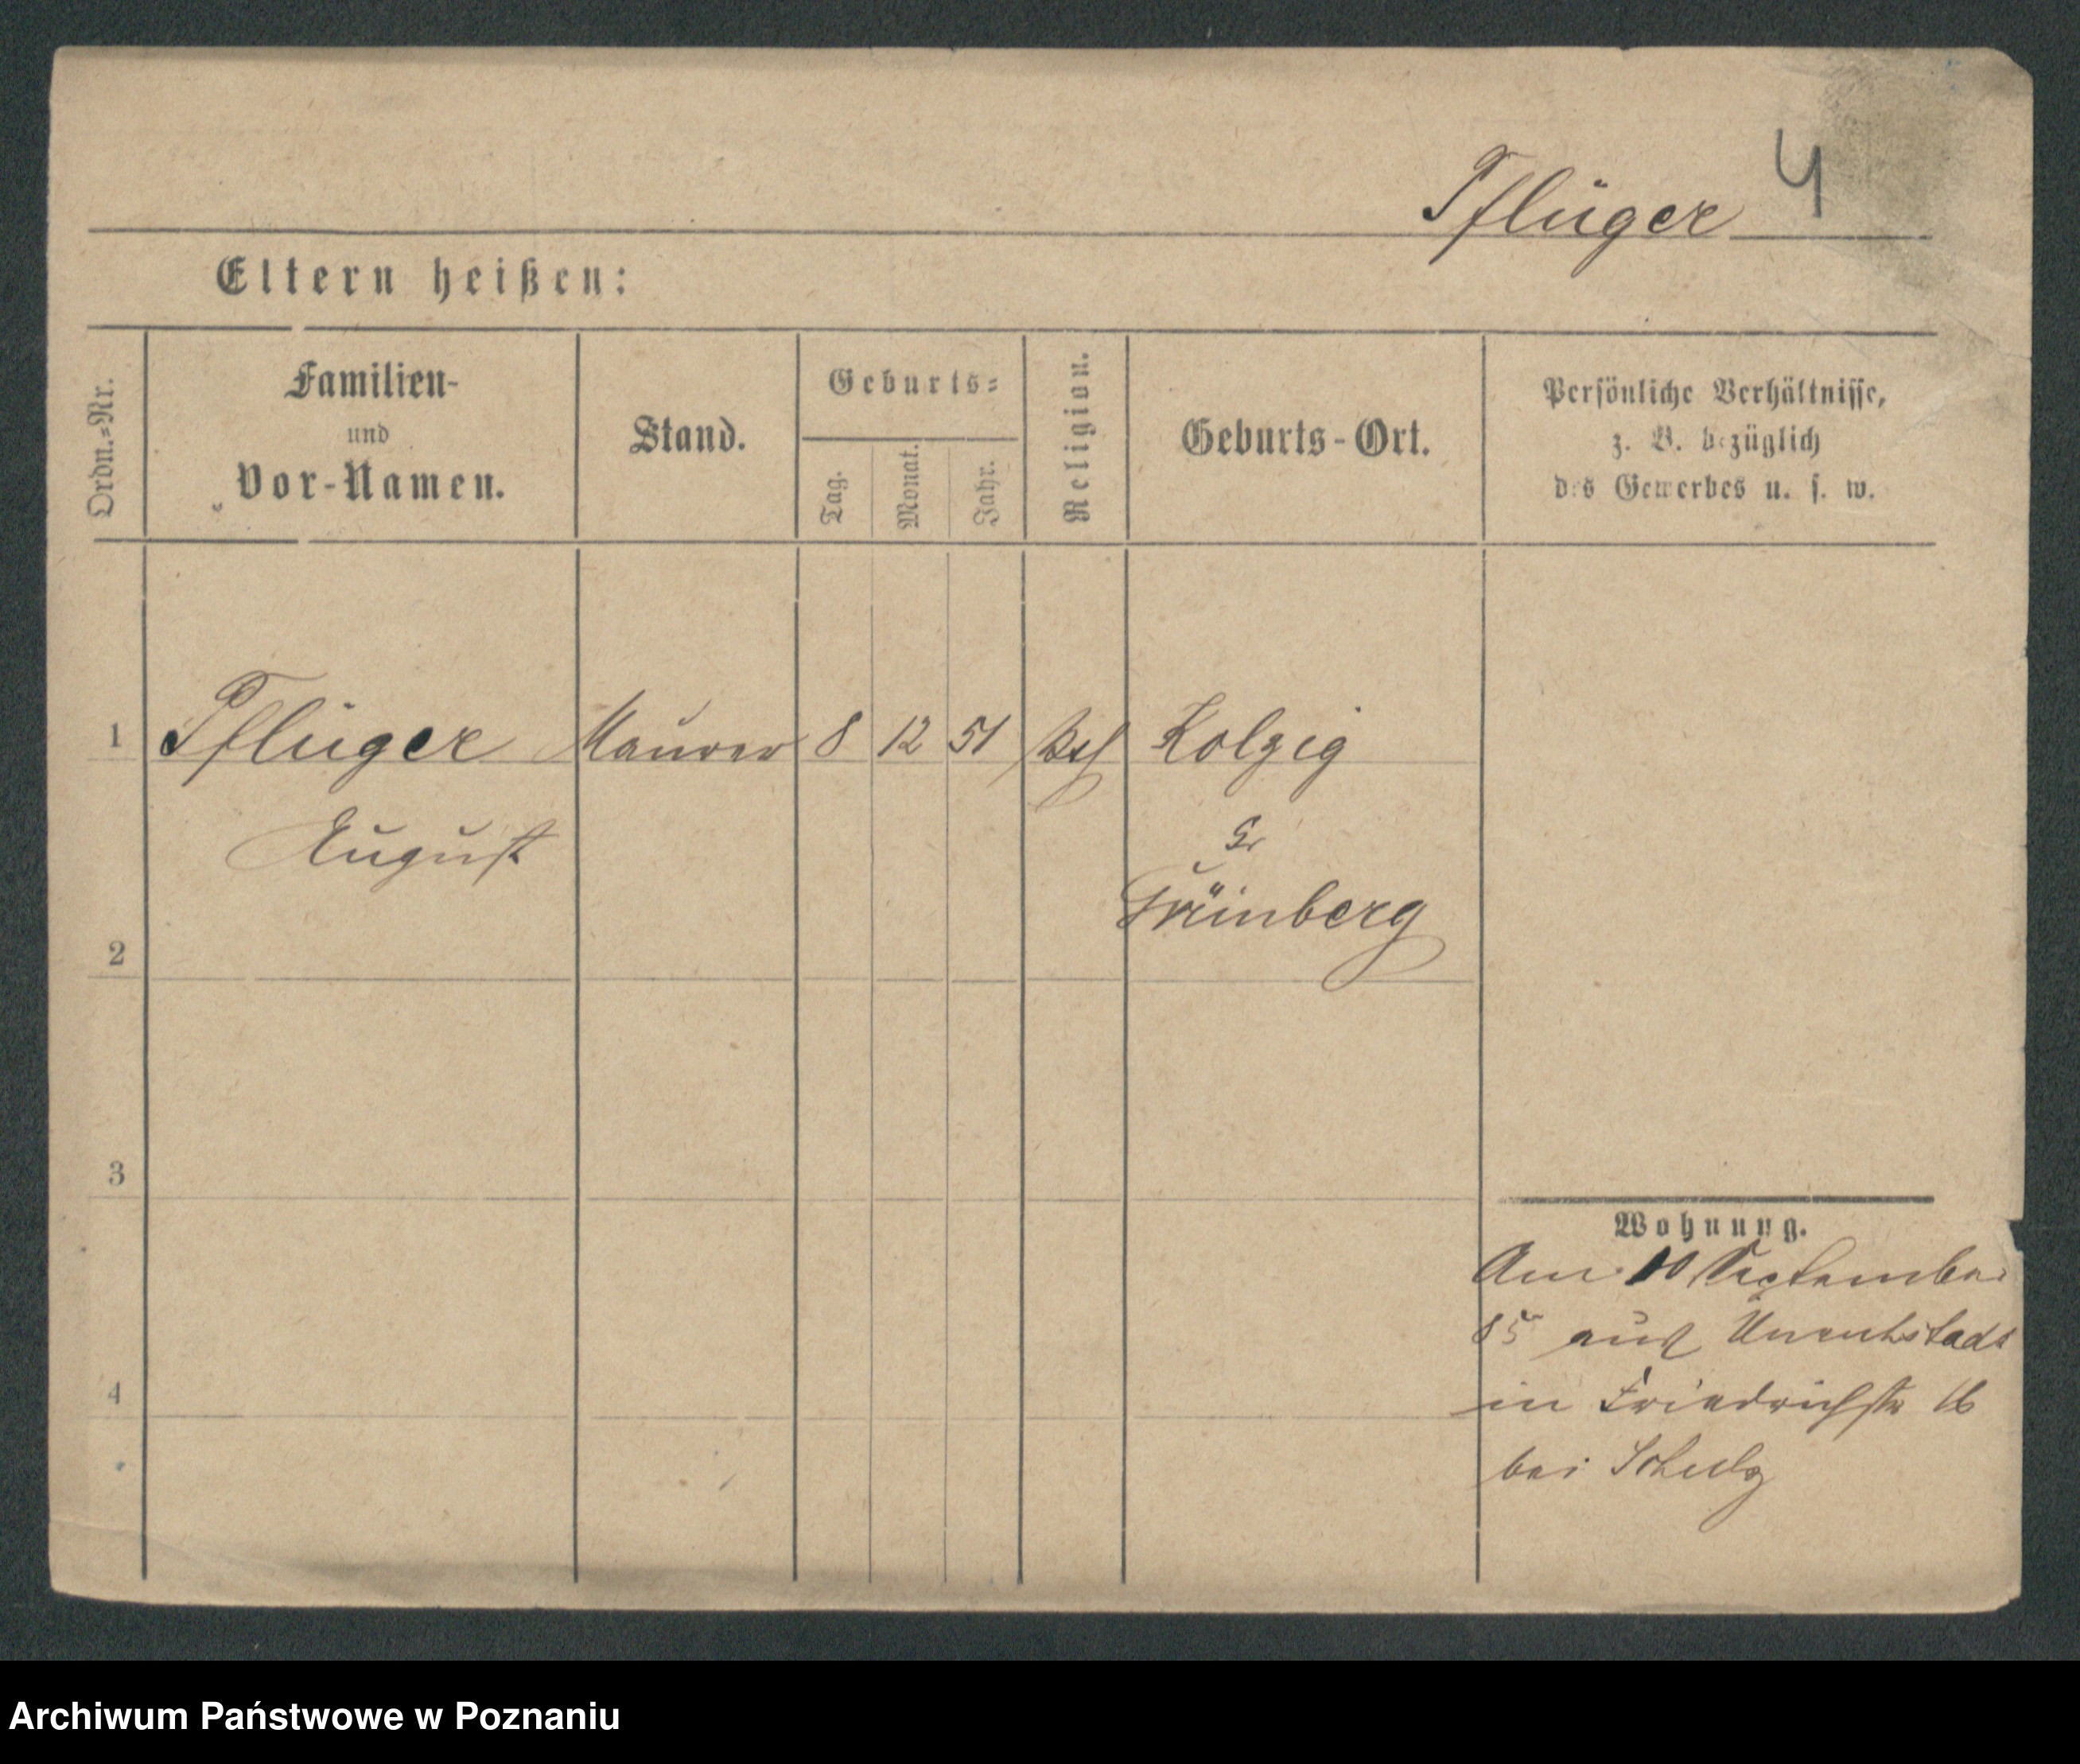 Pflüger 4
Eltern heißen:
Ordn.=Nr.
Familien-
und
Vor-Namen.
Stand.
Geburts=
Tag.
Monat.
Jahr.
Religion.
Geburts-Ort.
Persönliche Verhältnisse,
z. B. bezüglich
des Gewerbes u. s. w.
1 Pflüger Maurer 8 12 51 Kolzig
August
Gr
Grünberg
2
3
4
Wohnung.
Am 10 September
85 aus Unruhstadt
in Friedrichstr 16
bei Schulz
Archiwum Państwowe w Poznaniu